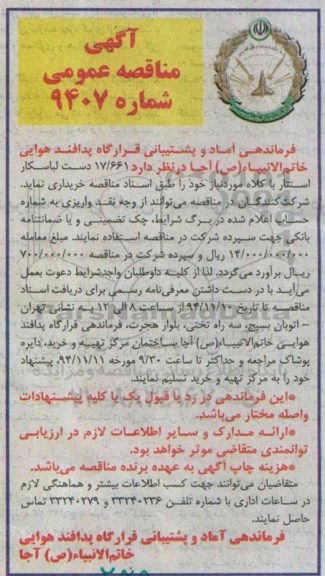 آگهی
مناقصه عمومی
شماره ۹۴۰۷
فرماندهی آماد و پشتیبانی قرارگاه پدافند هوایی
خاتم‌الانبیاء(ص) آجا درنظر دارد ۱۷/۶۶۱ دست لباسکار
استتار با کلاه موردنیاز خود را طبق اسناد مناقصه خریداری نماید.
شرکت‌کنندگان در مناقصه می‌توانند از وجه نقد واریزی به شماره
حساب اعلام شده در برگ شرایط، چک تضمینی و یا ضمانتنامه
بانکی جهت سپرده شرکت در مناقصه استفاده نمایند. مبلغ معامله
۱۴/۰۰۰/۰۰۰/۰۰۰ ریال و سپرده شرکت در مناقصه ۷۰۰/۰۰۰/۰۰۰
ریال برآورد می‌گردد. لذا از کلیه داوطلبان واجدشرایط دعوت بعمل
می‌آید با در دست داشتن معرفی‌نامه رسمی برای دریافت اسناد
مناقصه تا تاریخ ۹۴/۱۱/۱۰ از ساعت ۸ الی ۱۲ به نشانی تهران
- اتوبان بسیج، سه راه تختی، بلوار هجرت، فرماندهی قرارگاه پدافند
هوایی خاتم‌الانبیاء(ص) آجا ساختمان مرکز تهیه و خرید، دایره
پوشاک مراجعه و حداکثر تا ساعت ۹/۳۰ مورخه ۹۴/۱۱/۱۱ پیشنهاد
خود را به مرکز تهیه و خرید تسلیم نمایند.
*این فرماندهی در رد یا قبول یک یا کلیه پیشنهادات
واصله مختار می‌باشد.
*ارائه مدارک و سایر اطلاعات لازم در ارزیابی
توانمندی متقاضی موثر خواهد بود.
*هزینه چاپ آگهی به عهده برنده مناقصه می‌باشد.
متقاضیان می‌توانند جهت کسب اطلاعات بیشتر و هماهنگی لازم
در ساعات اداری با شماره تلفن ۳۳۲۴۰۲۳۶ و ۳۳۲۴۰۲۷۹ تماس
حاصل نمایند.
فرماندهی آماد و پشتیبانی قرارگاه پدافند هوایی
خاتم‌الانبیاء(ص) آجا